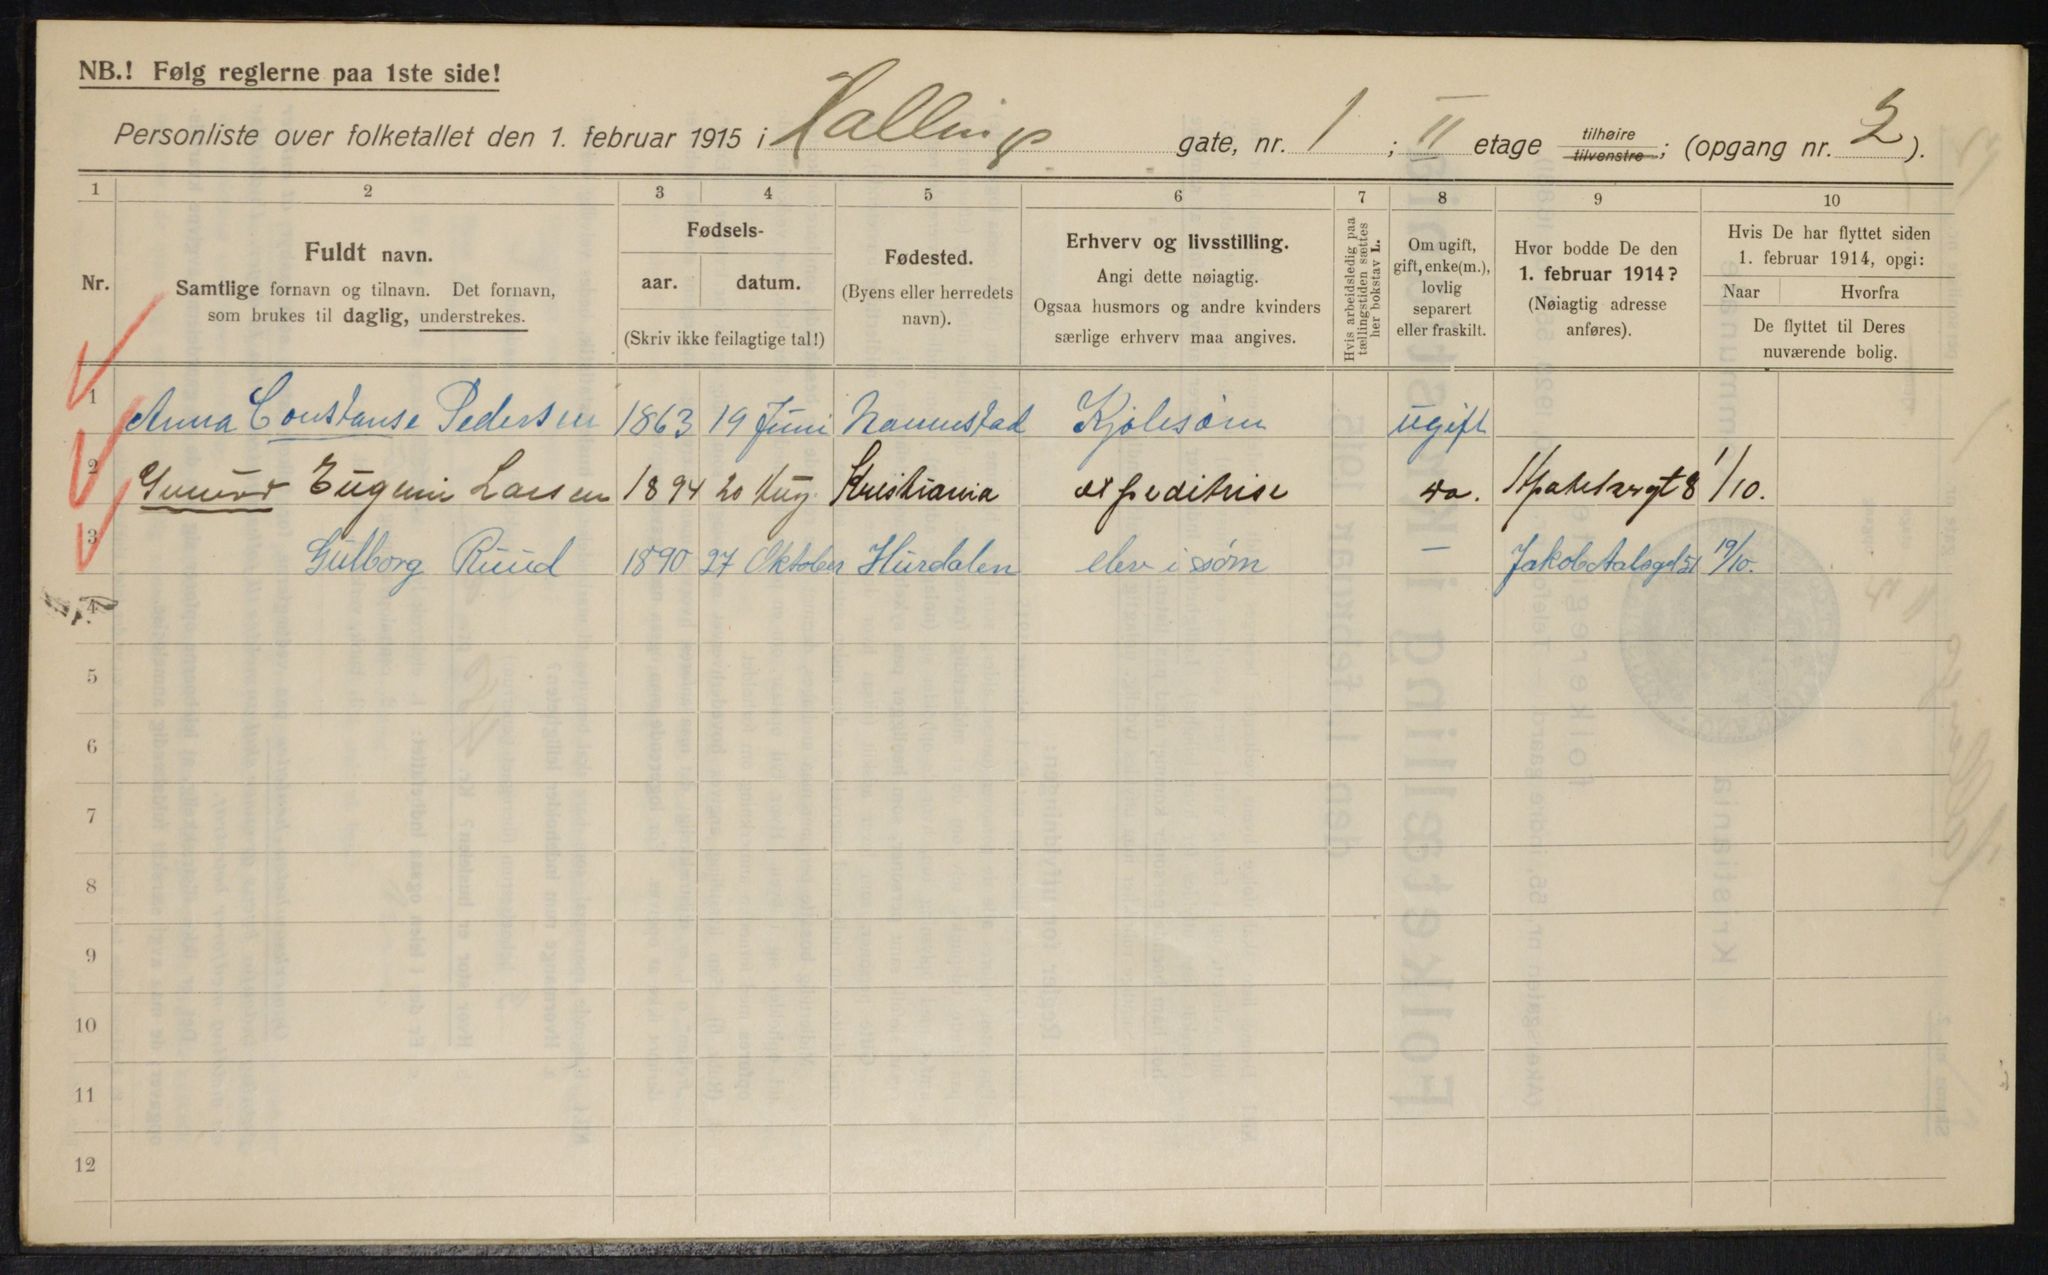 NB.! Følg reglerne paa 1ste side!
Personliste over folketallet den 1. februar 1915 i Hallings gate, nr. 1 ; II etage tilhøire tilvenstre; (opgang nr. 2).
1 2 3 4 5 6 7 8 9 10
Nr.
Fuldt navn.
Samtlige fornavn og tilnavn. Det fornavn,
som brukes til daglig, understrekes.
Fødsels-
aar. datum.
(Skriv ikke feilagtige tal!)
Fødested.
(Byens eller herredets
navn).
Erhverv og livsstilling.
Angi dette nøiagtig.
Ogsaa husmors og andre kvinders
særlige erhverv maa angives.
Hvis arbeidsledig paa
tællingstiden sættes
her bokstav L.
Om ugift,
gift, enke(m.),
lovlig
separert
eller fraskilt.
Hvor bodde De den
1. februar 1914?
(Nøiagtig adresse
anføres).
Hvis De har flyttet siden
1. februar 1914, opgi:
Naar Hvorfra
De flyttet til Deres
nuværende bolig.
1 Anna Constanse Pedersen 1863 19 Juni Nannestad Kjolesøm ugift
2 Gunvor Eugenie Larsen 1894 20 Aug. Kristiania expeditrise 1/10.
3 Gulborg Ruud 1890 27 Oktober Hurdalen elev i søm — Jakob Aalsgt 51 19/10.
4
5
6
7
8
9
10
11
12